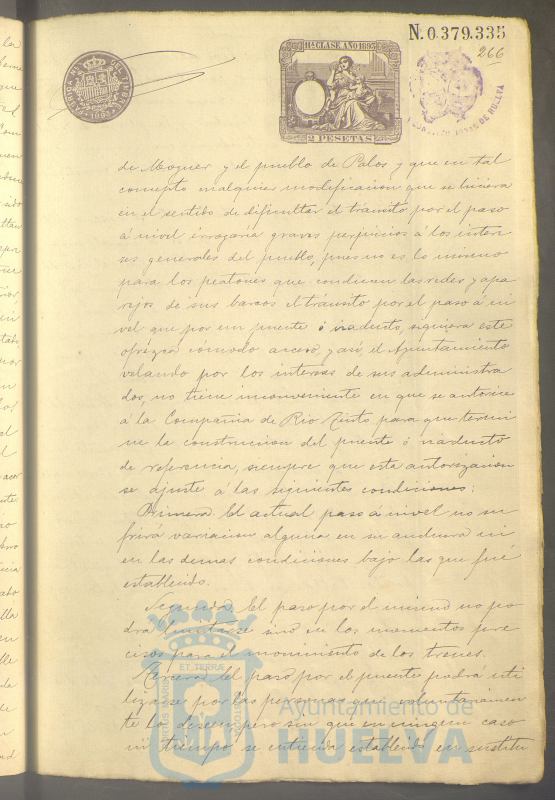 N. 0.379.335
266
11ª CLASE AÑO 1893
2 PESETAS
1893
HUELVA
de Moguer y el pueblo de Palos y que en tal
concepto cualquier modificacion que se hiciera
en el sentido de dificultar el tránsito por el paso
á nivel irrogaria graves perjuicios á los intere
ses generales del pueblo, pues no es lo mismo
para los peatones que conducen las redes y apa
rejos de sus barcos el tránsito por el paso á ni
vel que por un puente ó viaducto, siquiera este
ofrezca cómodo acceso, y asi, el Ayuntamiento
velando por los intereses de sus administra
dos, no tiene inconveniente en que se autorice
á la Compañia de Rio Tinto para que termi
ne la construccion del puente ó viaducto
de referencia, siempre que esta autorizacion
se ajuste á las siguientes condiciones:
Primera. El actual paso á nivel no su
frirá variacion alguna en su anchura ni
en las demas condiciones bajo las que fué
establecido.
Segunda. El paso por el mismo no po
drá limitarse sino en los momentos pre
cisos para el movimiento de los trenes.
Tercera. El paso por el puente podrá uti
lizarse por las personas que voluntariamen
te lo deseen pero sin que en ningun caso
ni tiempo se entienda establecido en sustitu
PORTUS MARIS
ET TERRÆ
CUSTODIA
Ayuntamiento de
HUELVA